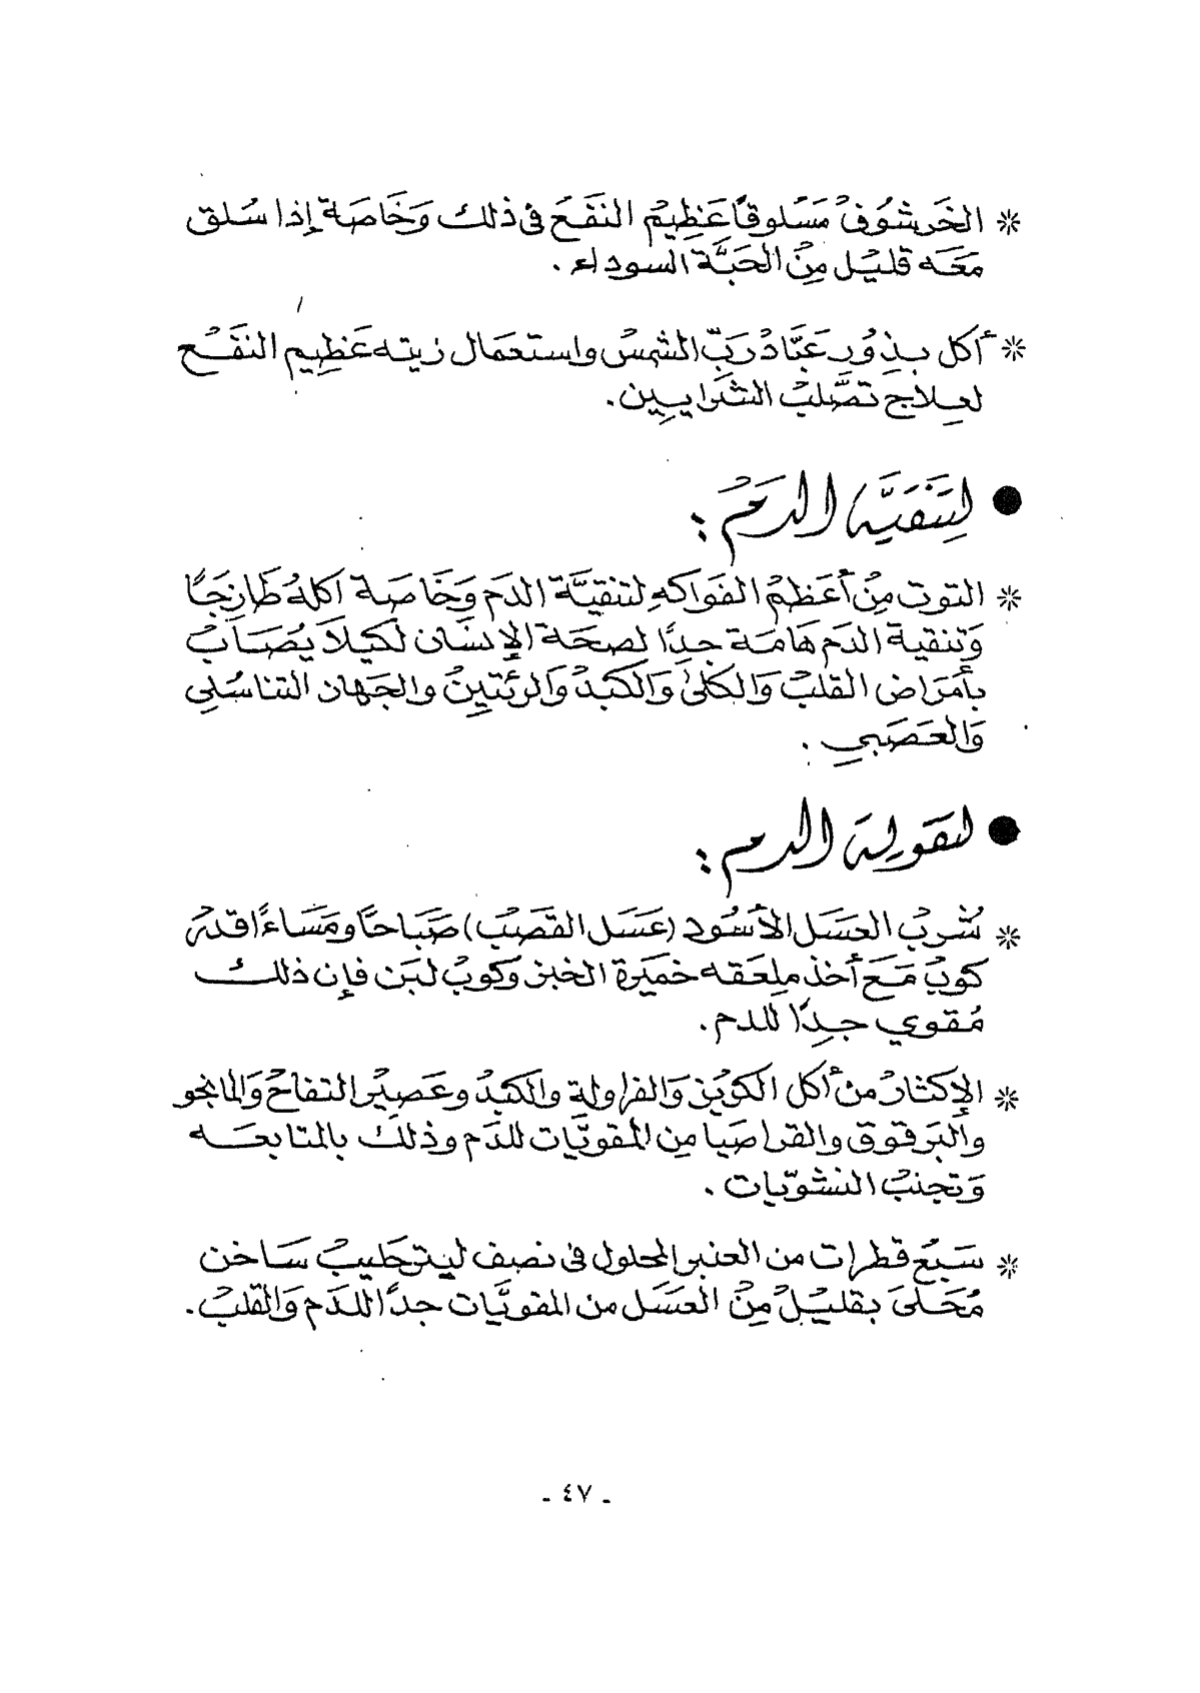 * الخَرشُوفْ مَسْلوقًا عَظِيمُ النَفَعَ فى ذلك وَخَاصَةً إذا سُلق
مَعَه قليْل مِنْ الحَبَّة السوداء .
* أكل بذِوُر عَبَّادْ رَبِّ الشمسْ واستعمَال زيته عَظِيم النفَعْ
لعِلاج تصَّلبْ الشَرايِين .
● لِتَنْقَيَّة الدَمْ :
* التوت مِنْ أعَظمْ الفَواكهِ لتنقيَّة الدَم وَخَاصَة اكلهُ طَازجًا
وَتنقية الدَم هَامَة جِدًا لصحَة الإنسَان لكيلاَ يُصَابْ
بأمَراض القلبْ وَالكلىْ وَالكَبدْ وَالرئتينْ والجَهاز التناسُلي
وَالعَصَبي .
● لتقَولية الدم :
* شُربْ العسَل الأسْود (عَسَل القَصَبْ) صَبَاحًا ومَسَاءًا قدْر
كوبْ مَعَ أخذ ملِعَقه خميَرة الخبز وَكوبْ لبَن فإن ذلك
مُقوي جِدًا للدم .
* الإكثارْ من أكل الكوينز وَالفراولة والكَبدْ وعَصِيْر التفاحْ وَالمانجو
والبَرقوق والقراصَيا مِن المقويَّات للدَم وذلكَ بالمتابعَه
وَتجنبْ النشويّات .
* سَبْع قطرات من العنبر المحلول فى نصف ليتر حَليبْ سَاخن
مُحَلىَ بقليْلْ مِنْ العَسَل من المقويَّات جدًا للدَم وَالقلبْ .
- ٤٧ -